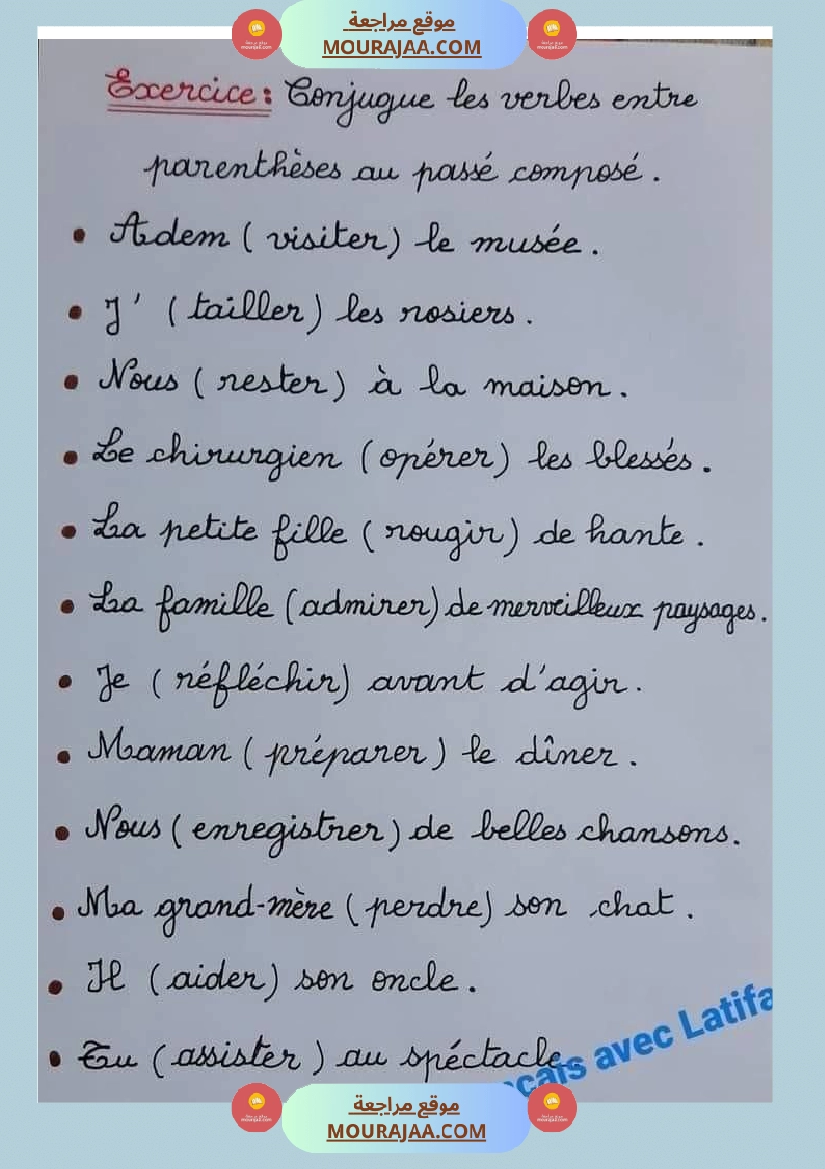 موقع مراجعة
MOURAJAA.COM
Exercice : Conjugue les verbes entre
parenthèses au passé composé .
• Adem ( visiter ) le musée .
• J' ( tailler ) les rosiers .
• Nous ( rester ) à la maison .
• Le chirurgien ( opérer ) les blessés .
• La petite fille ( rougir ) de hante .
• La famille ( admirer ) de merveilleux paysages .
• Je ( réfléchir ) avant d'agir .
• Maman ( préparer ) le dîner .
• Nous ( enregistrer ) de belles chansons .
• Ma grand-mère ( perdre ) son chat .
• Il ( aider ) son oncle .
• Tu ( assister ) au spéctacle
çais avec Latifa
موقع مراجعة
MOURAJAA.COM